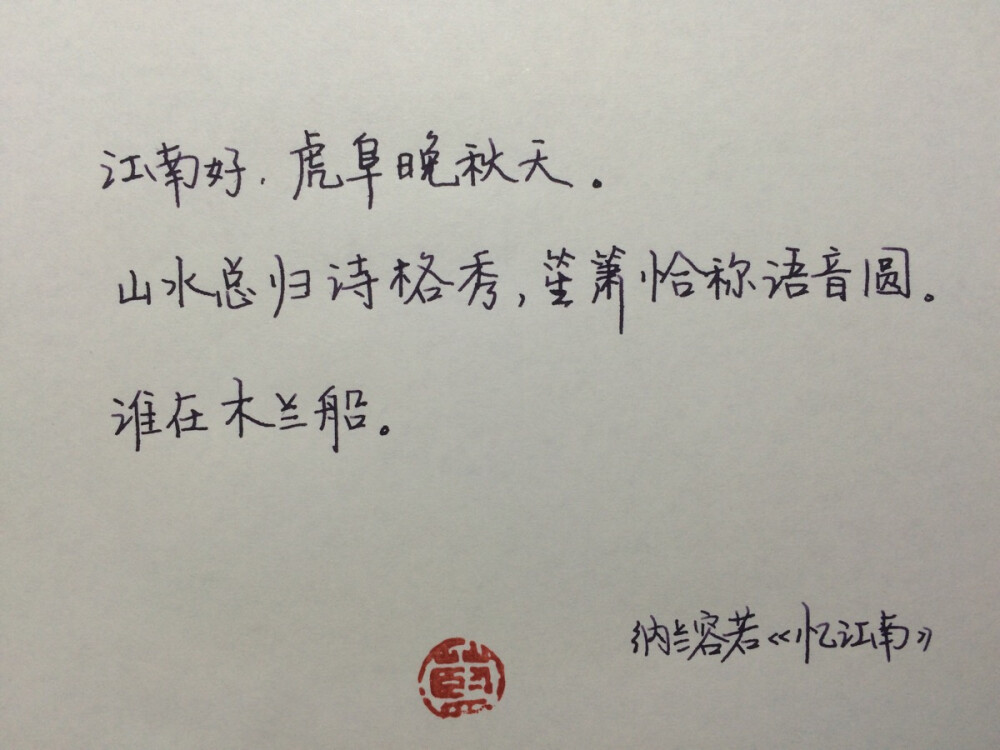 江南好，虎阜晚秋天。
山水总归诗格秀，笙萧恰称语音圆。
谁在木兰船。
纳兰容若《忆江南》